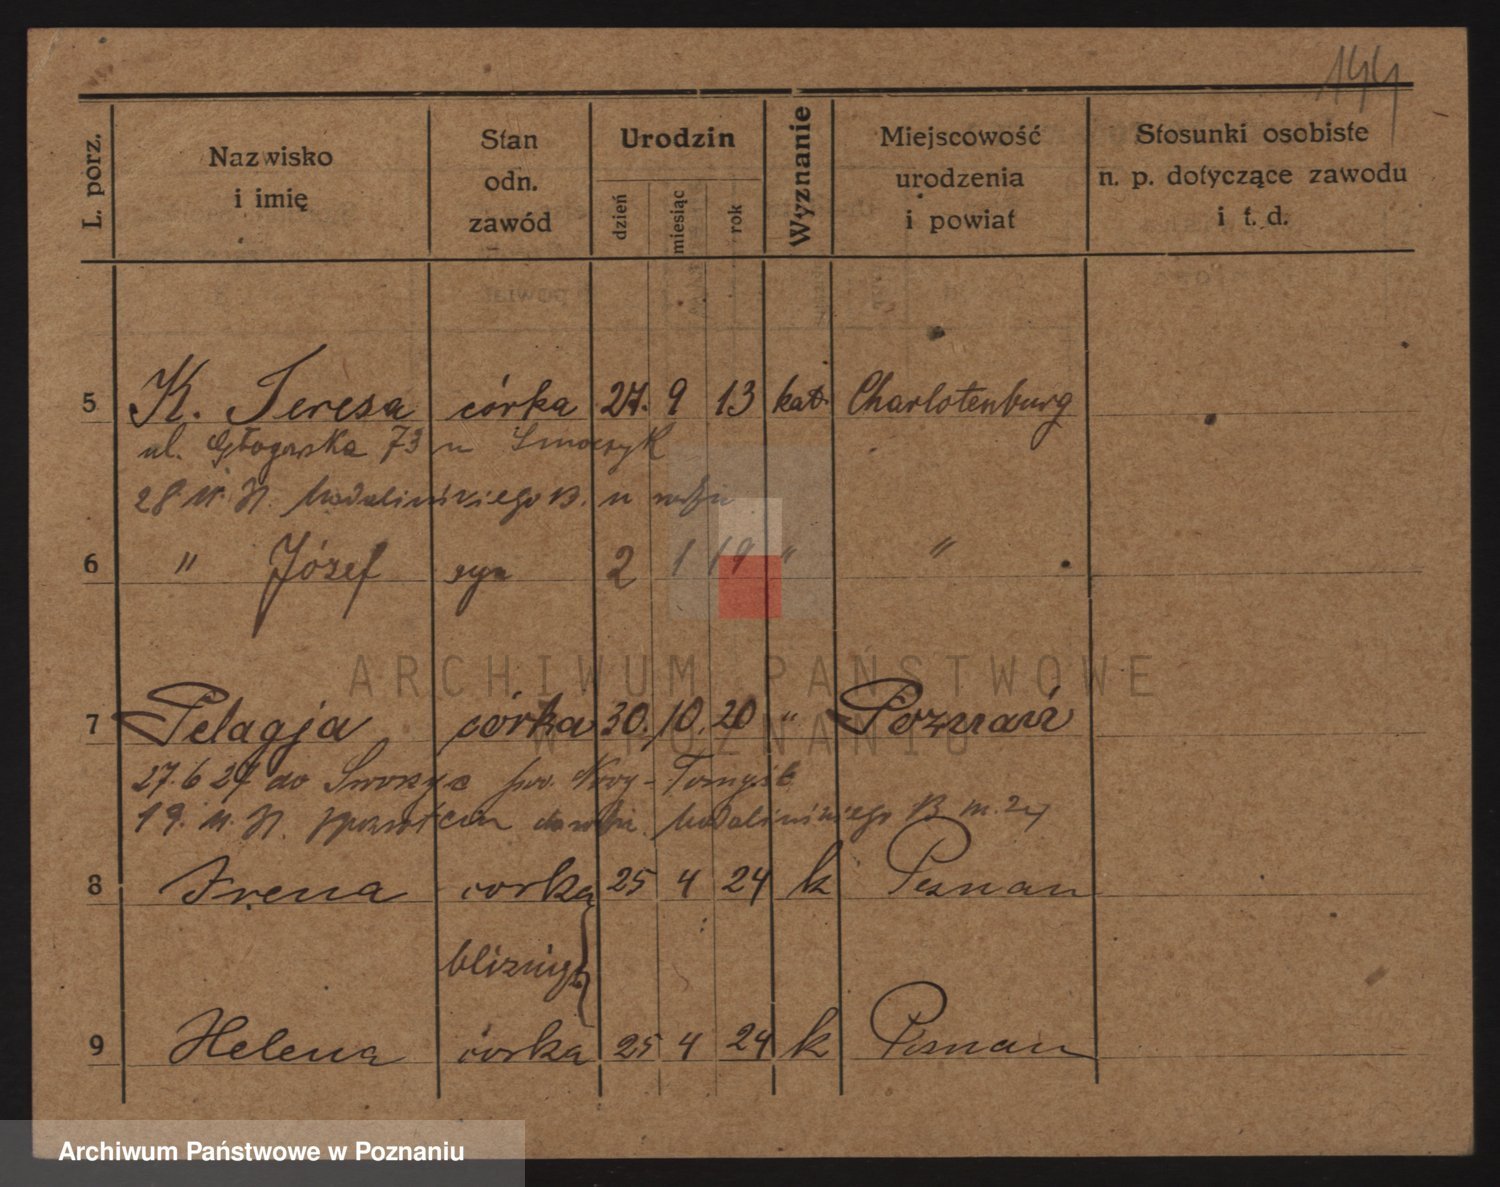 144
L. porz.
Nazwisko
i imię
Stan
odn.
zawód
Urodzin
dzień
miesiąc
rok
Wyznanie
Miejscowość
urodzenia
i powiat
Stosunki osobiste
n. p. dotyczące zawodu
i t. d.
5 K. Teresa córka 27. 9 13 kat. Charlotenburg
ul. Głogowska 73 u
28 Madalińskiego
6 " Józef syn 2 1 19 " "
7 Pelagja córka 30. 10. 20 " Poznań
27. 6 24 do pow. Nowy-Tomyśl
19. Madalińskiego
8 Irena corka 25 4 24 k Poznan
bliznięt
9 Helena corka 25 4 24 k Poznan
ARCHIWUM PAŃSTWOWE
W POZNANIU
Archiwum Państwowe w Poznaniu